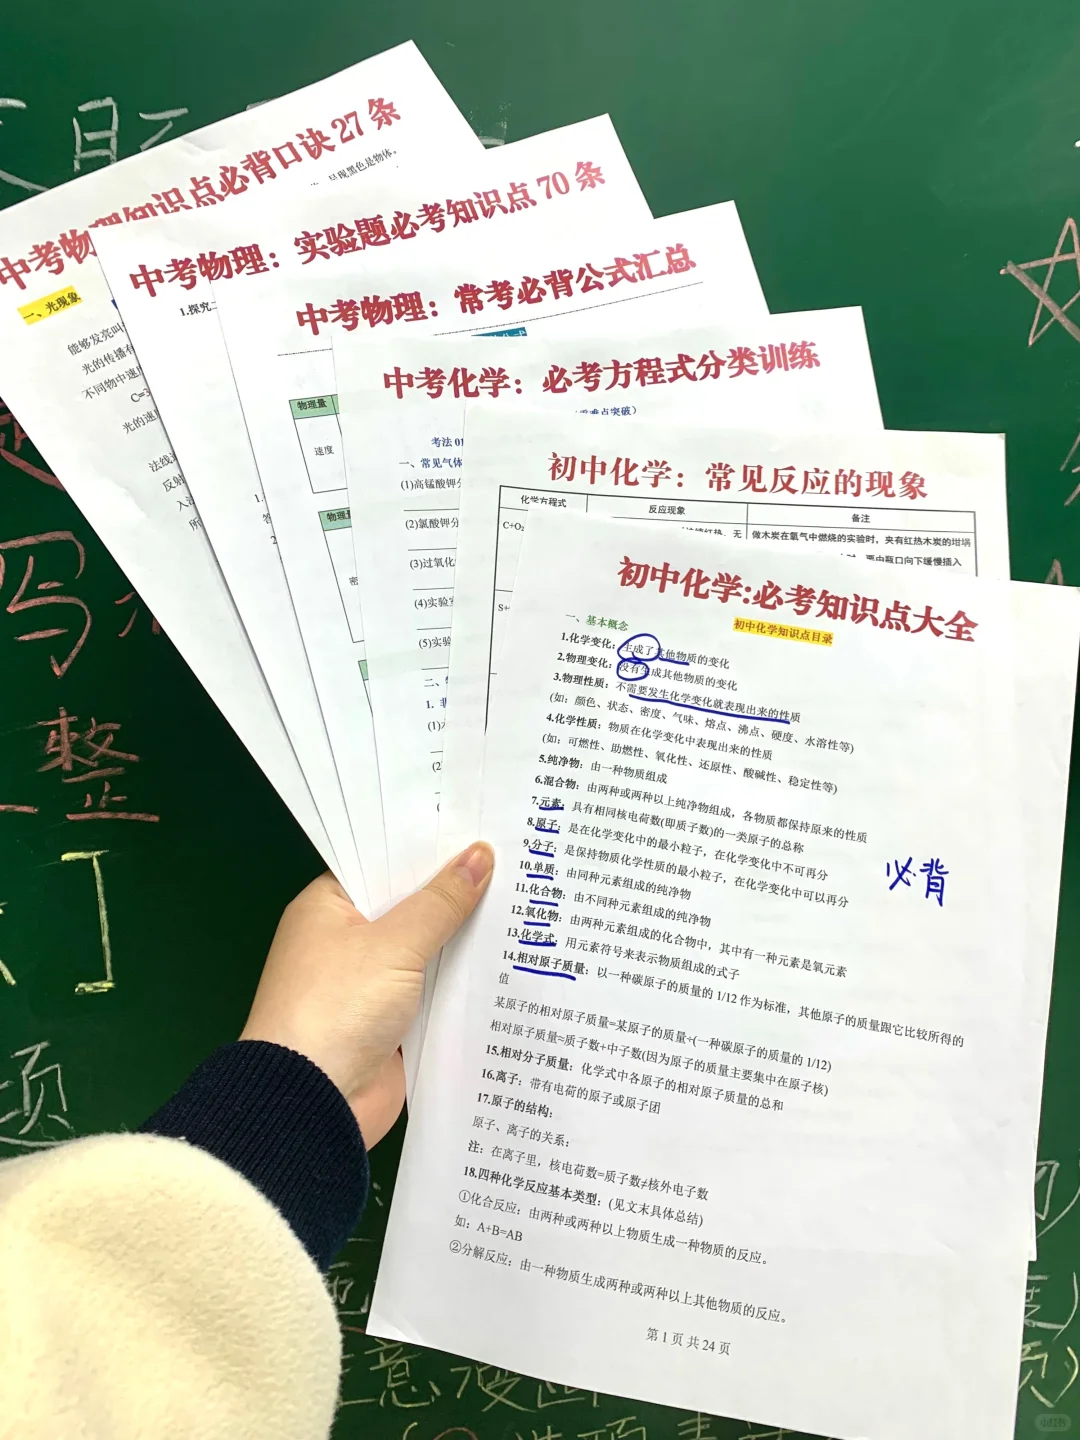 中考物理知识点必背口诀27条
呈现黑色是物体。
一、光现象
能够发亮叫
光的传播有
不同物中速度
C=3
光的速度
法线
反射
入法
所
中考物理：实验题必考知识点70条
1.探究二
中考物理：常考必背公式汇总
物理量
速度
物理量
密
中考化学：必考方程式分类训练
考法 01
一、常见气体
(1)高锰酸钾分
(2)氯酸钾分
(3)过氧化
(4)实验室
(5)实验
二、
1. 非
(1)
(2)
初中化学：常见反应的现象
化学方程式 反应现象 备注
C+O₂ 做木炭在氧气中燃烧的实验时，夹有红热木炭的坩埚
要由瓶口向下缓慢插入
S+
初中化学:必考知识点大全
初中化学知识点目录
一、基本概念
1.化学变化：生成了其他物质的变化
2.物理变化：没有生成其他物质的变化
3.物理性质：不需要发生化学变化就表现出来的性质
(如：颜色、状态、密度、气味、熔点、沸点、硬度、水溶性等)
4.化学性质：物质在化学变化中表现出来的性质
(如：可燃性、助燃性、氧化性、还原性、酸碱性、稳定性等)
5.纯净物：由一种物质组成
6.混合物：由两种或两种以上纯净物组成，各物质都保持原来的性质
7.元素：具有相同核电荷数(即质子数)的一类原子的总称
8.原子：是在化学变化中的最小粒子，在化学变化中不可再分
9.分子：是保持物质化学性质的最小粒子，在化学变化中可以再分
10.单质：由同种元素组成的纯净物
11.化合物：由不同种元素组成的纯净物
12.氧化物：由两种元素组成的化合物中，其中有一种元素是氧元素
13.化学式：用元素符号来表示物质组成的式子
14.相对原子质量：以一种碳原子的质量的 1/12 作为标准，其他原子的质量跟它比较所得的
值
某原子的相对原子质量=某原子的质量÷(一种碳原子的质量的 1/12)
相对原子质量≈质子数+中子数(因为原子的质量主要集中在原子核)
15.相对分子质量：化学式中各原子的相对原子质量的总和
16.离子：带有电荷的原子或原子团
17.原子的结构：
原子、离子的关系：
注：在离子里，核电荷数=质子数≠核外电子数
18.四种化学反应基本类型：(见文末具体总结)
①化合反应：由两种或两种以上物质生成一种物质的反应。
如：A+B=AB
②分解反应：由一种物质生成两种或两种以上其他物质的反应。
第 1 页 共 24 页
必背
整
小红书